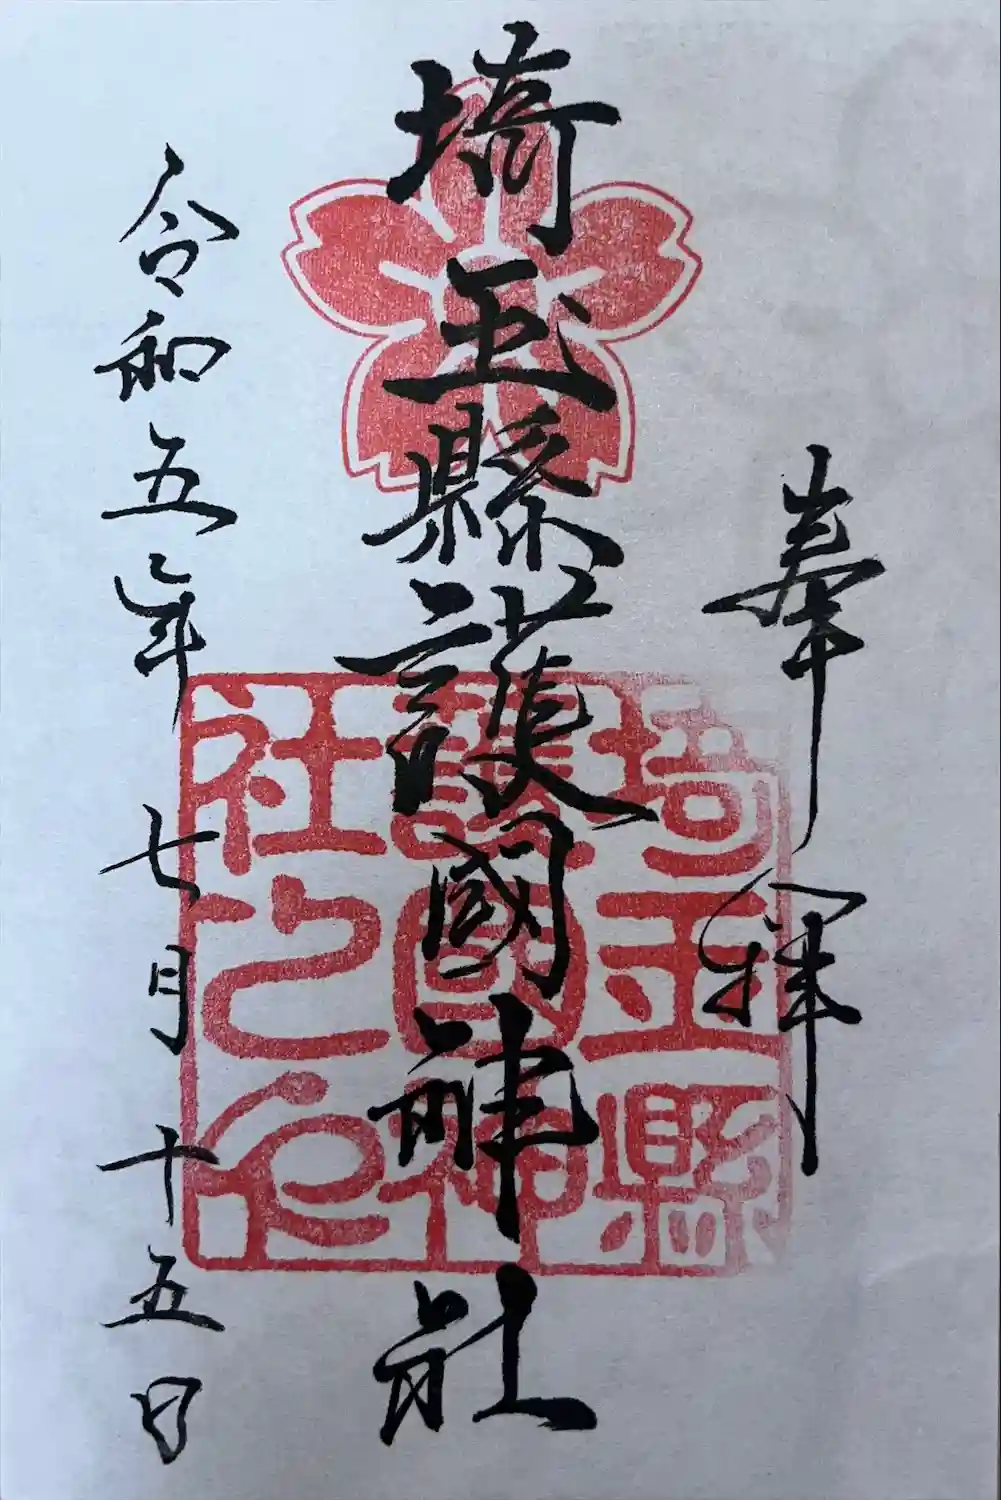 奉拝
埼玉縣護國神社
埼玉縣
護國神
社之印
令和五年七月十五日